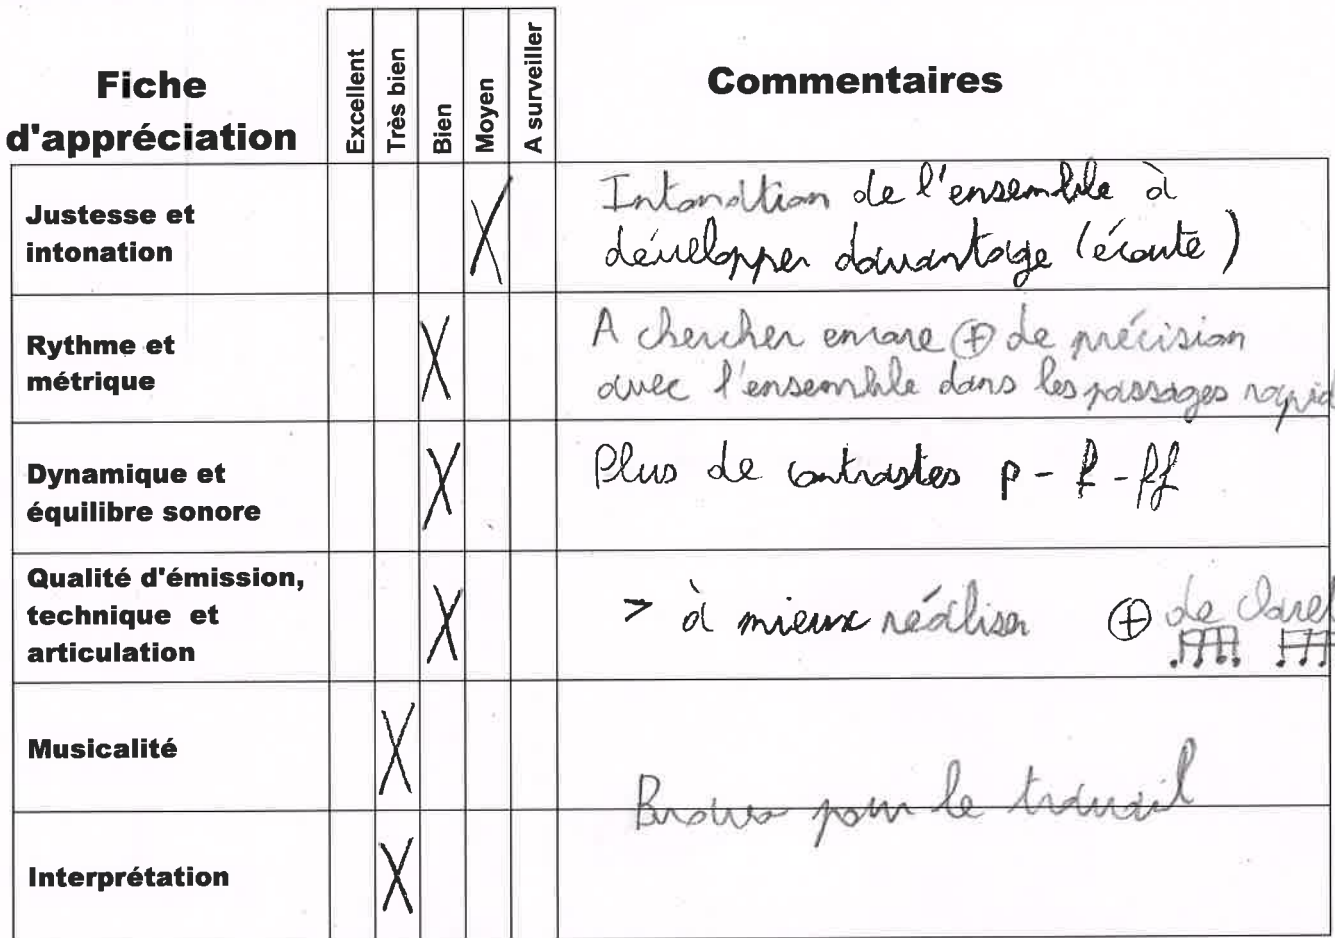 Fiche
d'appréciation
Excellent
Très bien
Bien
Moyen
A surveiller
Commentaires
Justesse et
intonation
Intonation de l'ensemble à
développer davantage (écoute)
Rythme et
métrique
A chercher encore + de précision
avec l'ensemble dans les passages rapid
Dynamique et
équilibre sonore
Plus de contrastes p - f - ff
Qualité d'émission,
technique et
articulation
> à mieux réaliser + de
Musicalité
Bravo pour le travail
Interprétation